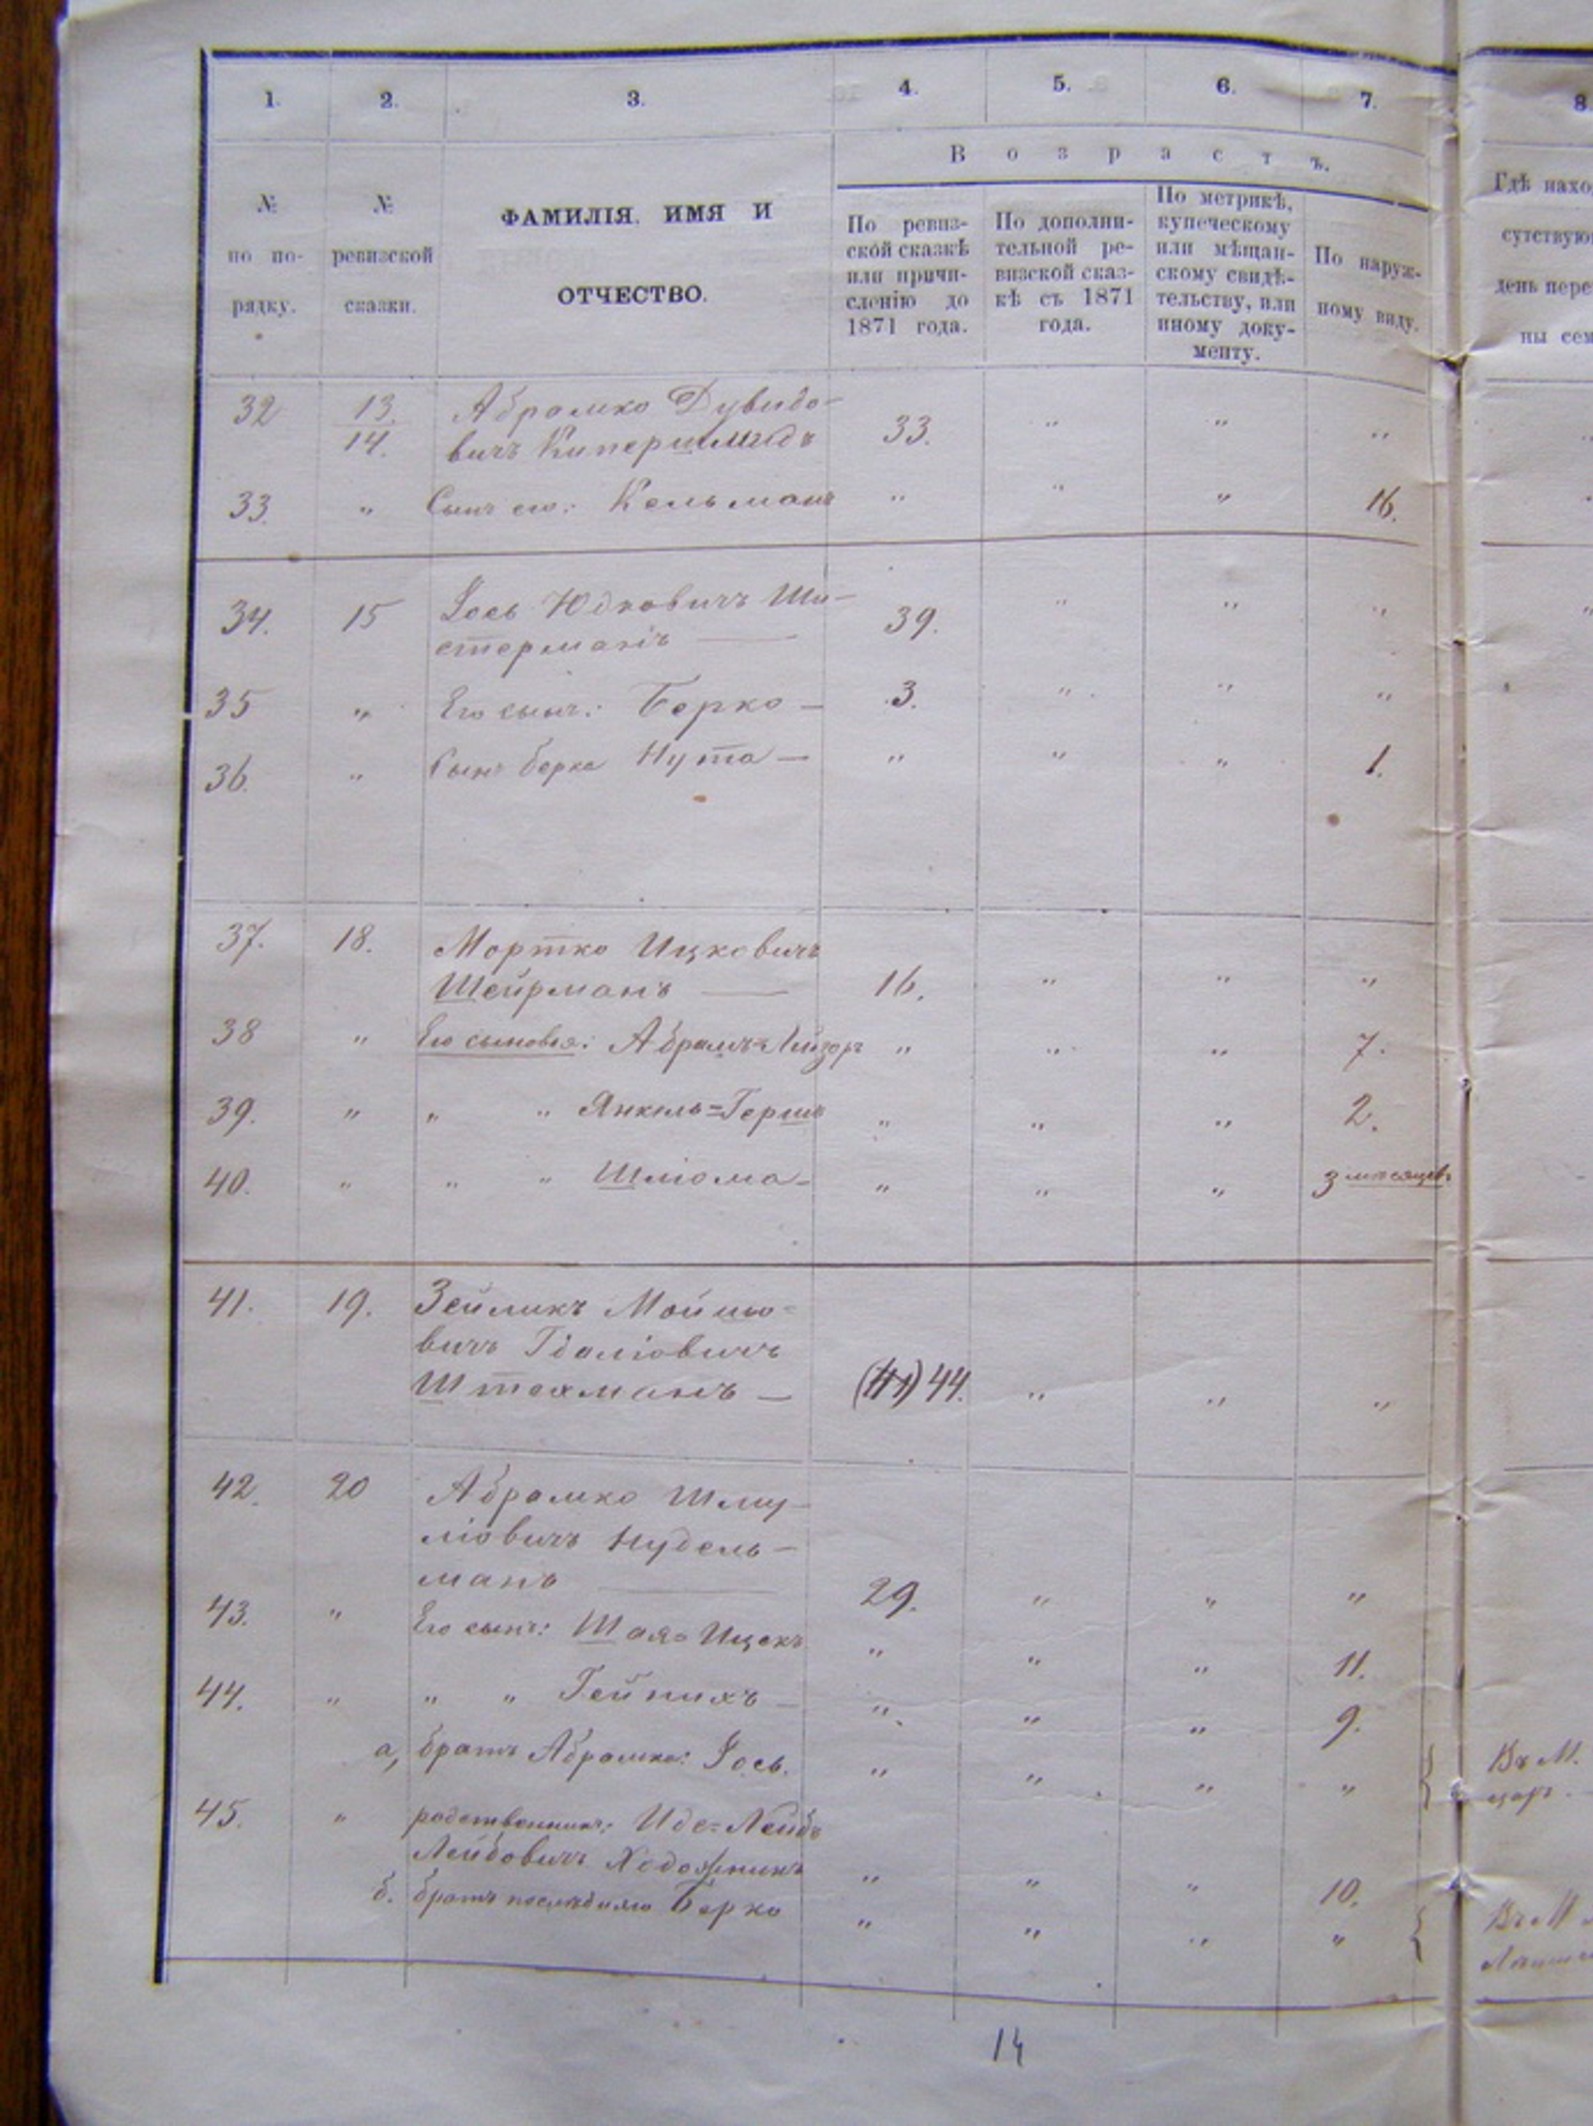 1. 2. 3. 4. 5. 6. 7. 8
В о з р а с т ъ.
№
по по-
рядку.
№
ревизской
сказки.
ФАМИЛІЯ. ИМЯ И
ОТЧЕСТВО.
По ревиз-
ской сказкѣ
или причи-
сленію до
1871 года.
По дополни-
тельной ре-
визской сказ-
кѣ съ 1871
года.
По метрикѣ,
купеческому
или мѣщан-
скому свидѣ-
тельству, или
иному доку-
менту.
По наруж-
ному виду.
Гдѣ нахо
сутствую
день пере
ны сем
32 13. Абрамко Дувидо-
14. вичъ Кипершмидъ 33. " " "
33. " Сынъ его: Кельманъ " " " 16.
34. 15 Іось Юдковичъ Ши-
стерманъ — 39. " " "
35 " Его сынъ: Берко — 3. " " "
36. " Сынъ Берка Нута — " " " 1.
37. 18. Мортко Ицковичъ
Шейрманъ — 16. " " "
38 " Его сыновья: Абрамъ=Лейзоръ " " " 7.
39. " " " Янкель=Гершъ " " " 2.
40. " " " Шліома - " " " 3 мѣсяцевъ
41. 19. Зейликъ Мойшо=
вичъ Гдаліовичъ
Штехманъ — 44. " " "
42. 20 Абрамко Шму-
ліовичъ Нудель-
манъ — 29. " " "
43. " Его сынъ: Шая=Ицекъ " " " 11.
44. " " " Гейнихъ — " " " 9.
а, братъ Абрамка: Іось. " " " " Въ М.
45. " родственникъ: Иде=Лейбъ
Лейбовичъ Ходожникъ " " " 10.
б. братъ послѣдняго Берко " " " " Въ М
14